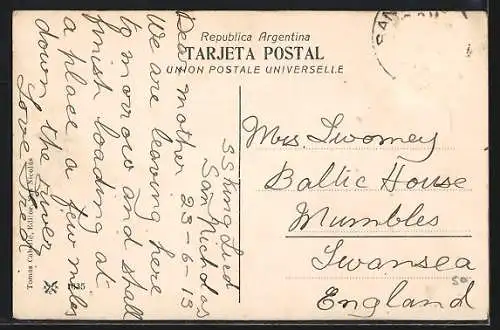 Republica Argentina
TARJETA POSTAL
UNION POSTALE UNIVERSELLE
SAN
SS King Lud
San Nicholas
23-6-13
Dear mother
We are leaving here
to morrow and shall
finish loading at
a place a few miles
down the river
Love Fred.
Mrs. Twomey
Baltic House
Mumbles
Swansea
England
50
Tomás Editor, San Nicolás
1635